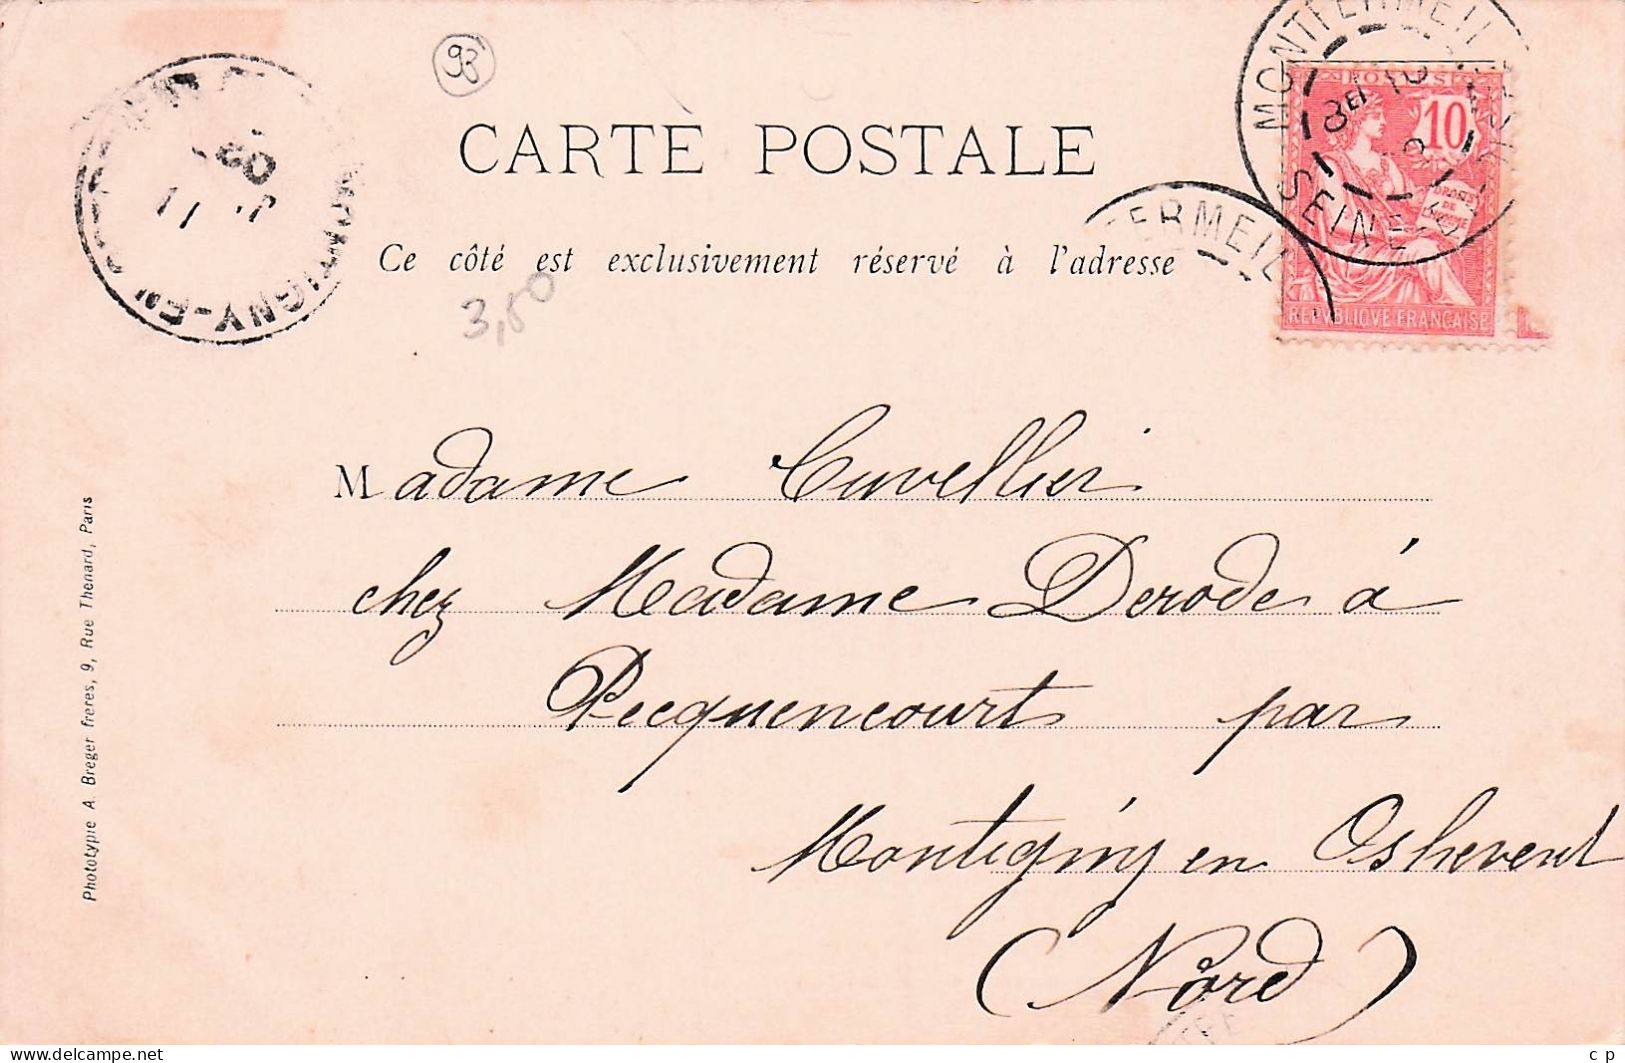 93
CARTE POSTALE
Ce côté est exclusivement réservé à l'adresse
3,50
MONTFERMEIL
SEINE-ET-
8E 10
FERMEIL
POSTES
10
DROITS
DE
L'HOMME
REPVBLIQVE FRANÇAISE
MONTIGNY-EN-
11
Madame Cuvellier
chez Madame Derode à
Pecquencourt par
Montigny en Oshevent
(Nord)
Phototypie A. Breger frères, 9, Rue Thenard, Paris
delcampe.net
c p